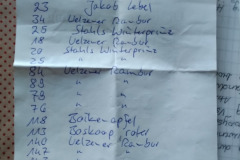 23 Jakob Lebel
34 Uelzener Rambur
25 Stahls Winterprinz
18 Uelzener Rambur
20 Stahls Winterprinz
25 " "
84 Uelzener Rambur
89 " "
78 " "
76 " "
118 Boikenapfel
113 Boskoop roter
140 Uelzener Rambur
147 " "